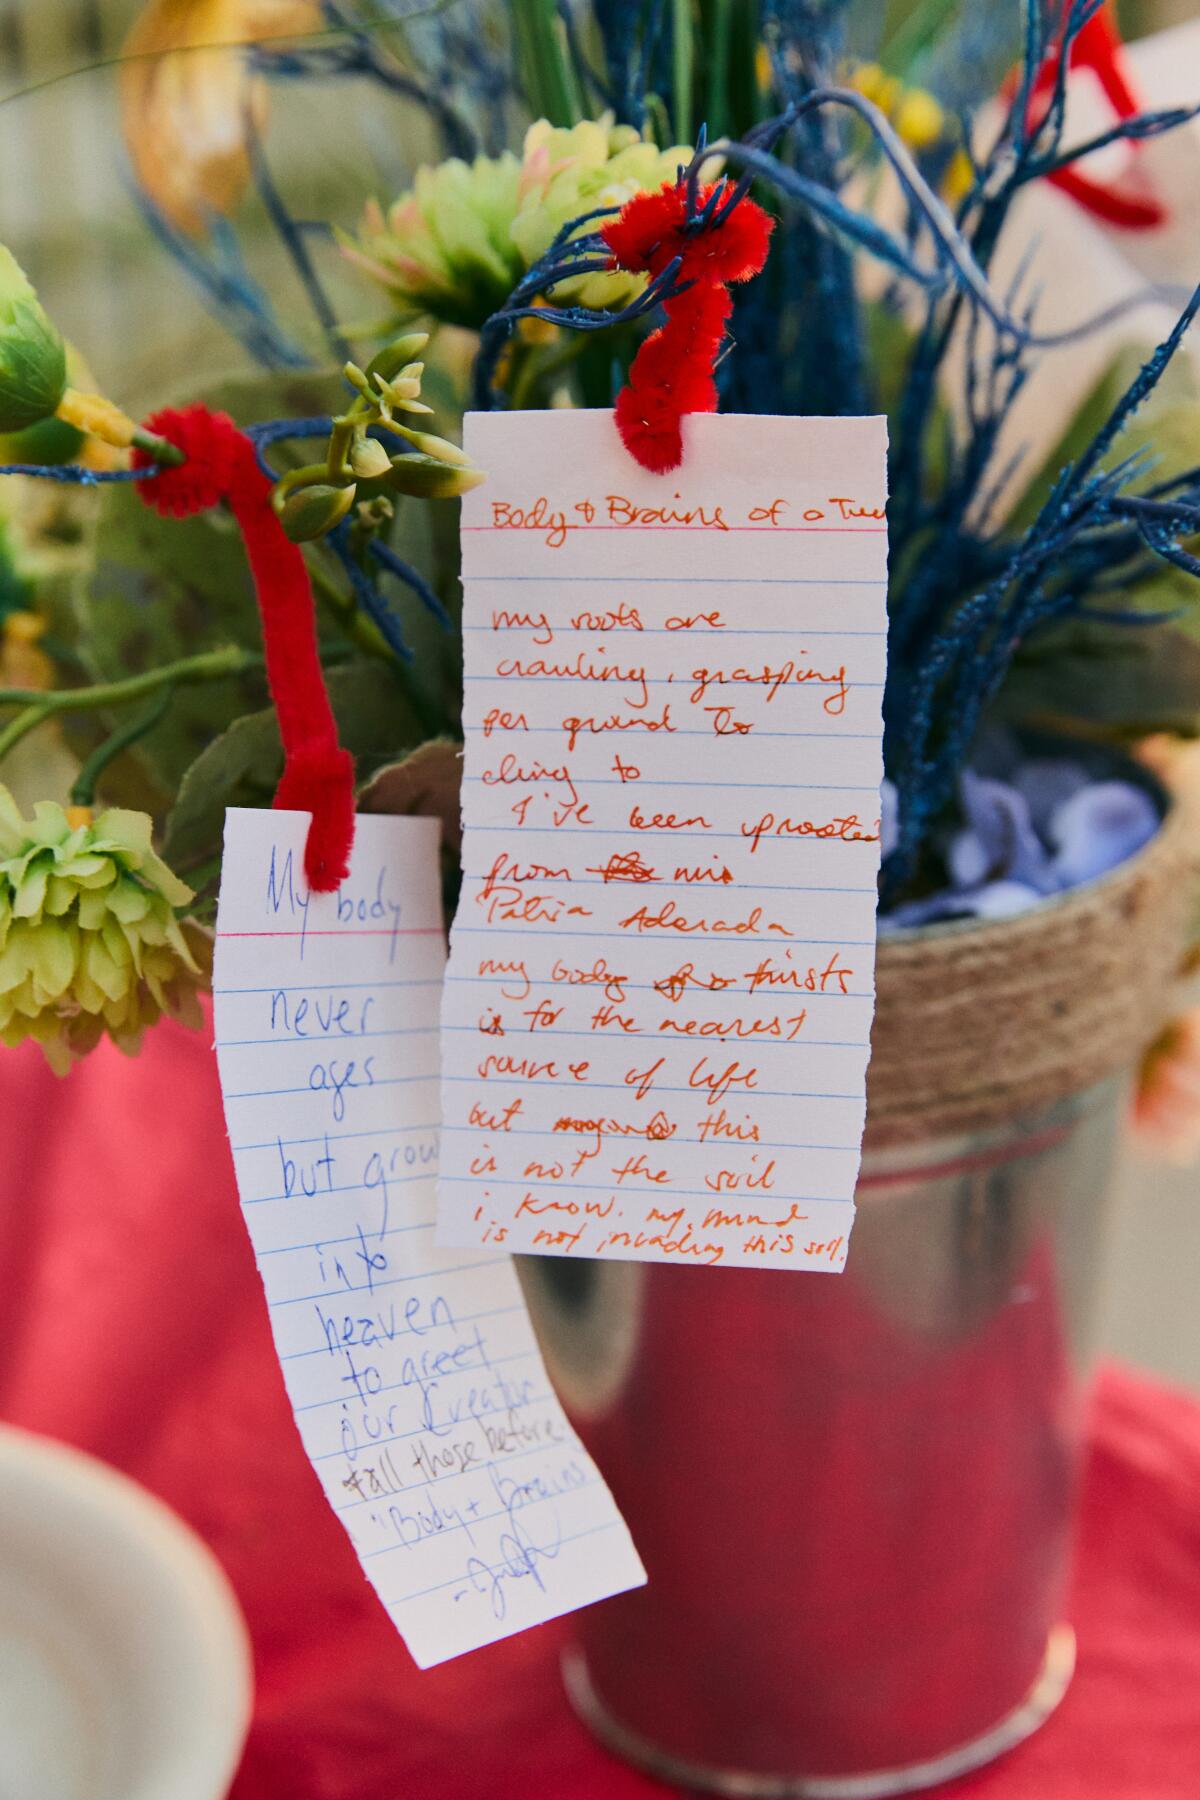 Body & Brains of a Tree
my roots are
crawling, grasping
for ground to
cling to
I've been uprooted
from mi
Patria Adorada
my body thirsts
is for the nearest
source of life
but this
is not the soil
i know. my mind
is not invading this soil.
My body
never
ages
but grow
into
heaven
to greet
our Creator
+ all those before
"Body + Brains